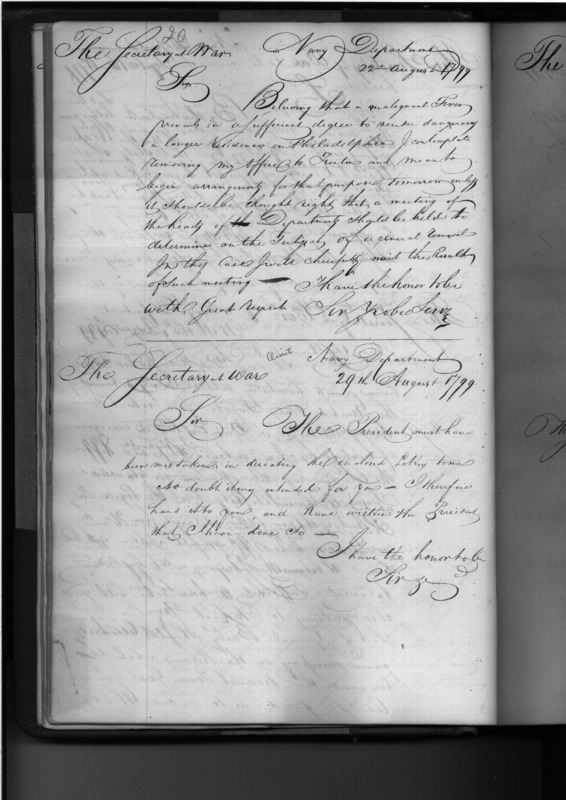 20
The Secretary at War
Navy Department
22d August 1799
Sir
Believing that a malignant Fever
prevails in a sufficient degree to render dangerous
a longer residence in Philadelphia I contemplate
removing my office to Trenton and mean to
begin arrangements for that purpose tomorrow unless
it should be thought right that a meeting of
the heads of Departments should be held to
determine on the Subject of a general removal
In this Case I will cheerfully wait the Result
of such meeting — I have the honor to be
with Great Respect Sir Yr obe Servt
The Secretary at War
Navy Department
29th August 1799
Sir The President must have
been mistaken in directing the inclosed letter to me
no doubt it was intended for you — I therefore
hand it to you, and have written the President
that I have done so —
I have the honor to be
Sir &c
The